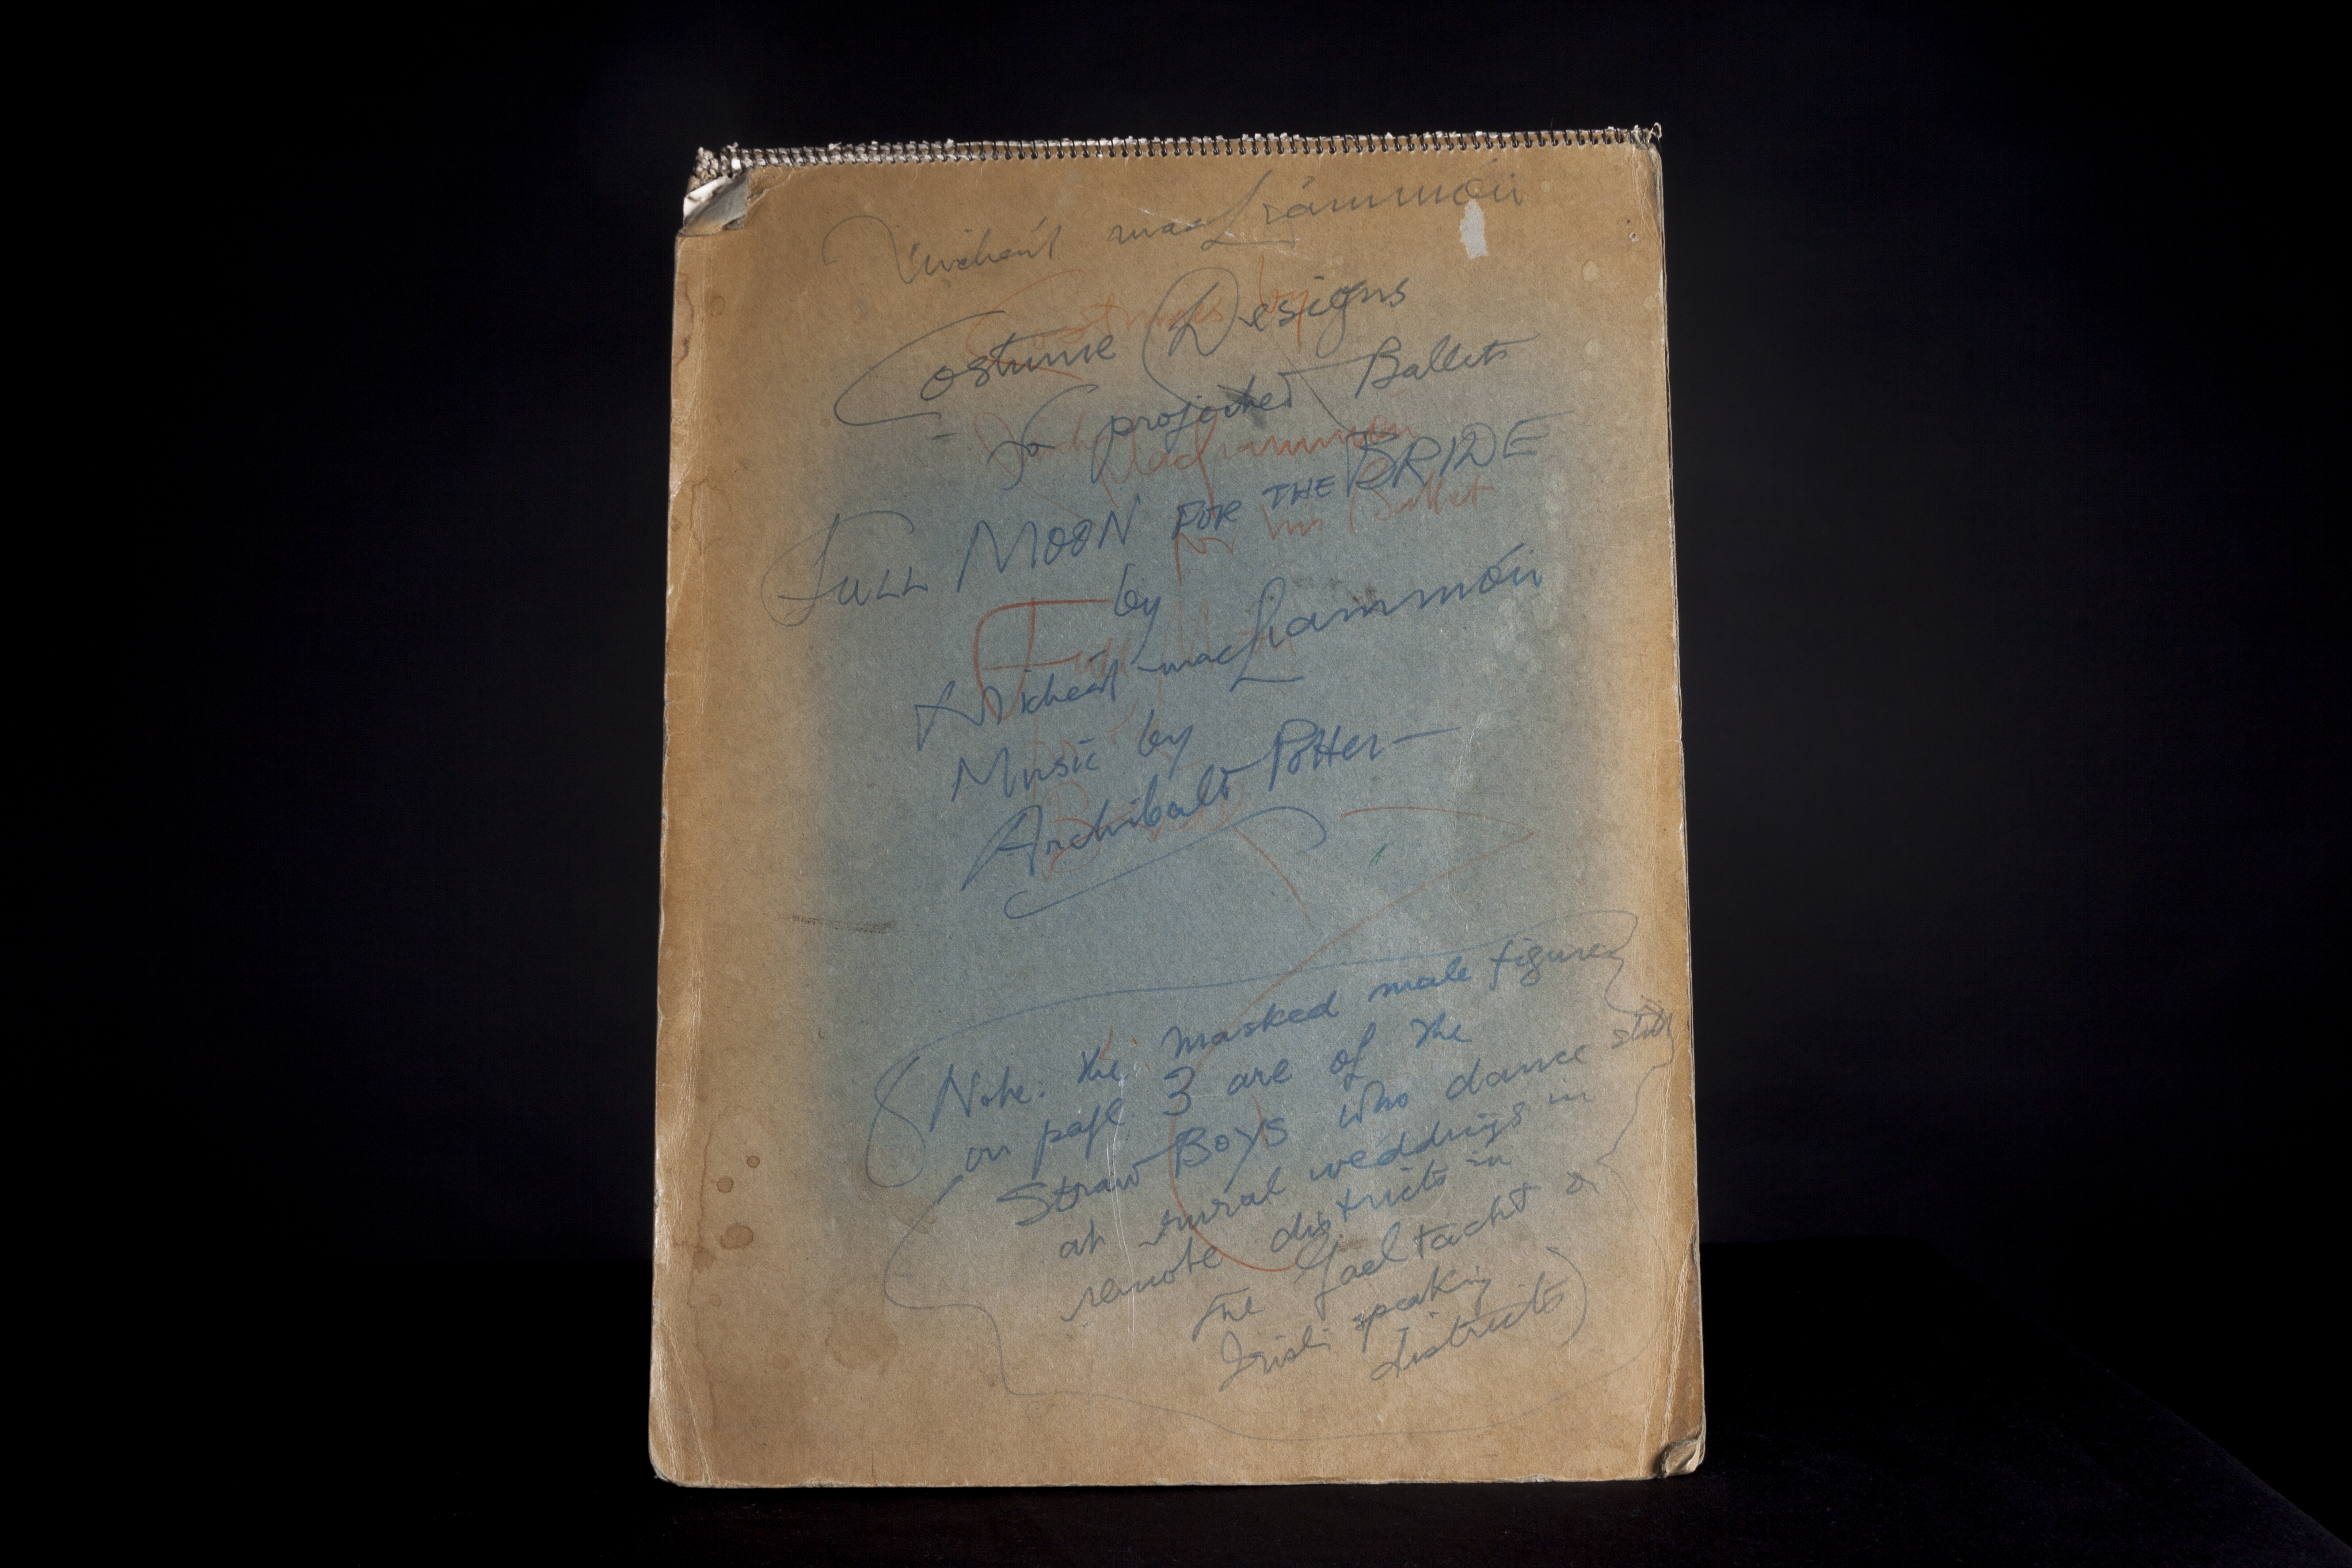 Micheál macLíammóir
Costume Designs
for projected Ballet
FULL MOON FOR THE BRIDE
by
Micheál macLíammóir
Music by
Archibald Potter —
Note: the masked male figures
on page 3 are of the
Straw BOYS who dance still
at rural weddings in
remote districts in
the Gaeltacht or
Irish speaking
districts)
Costumes by
Micheál MacLíammóir
for his Ballet
Full Moon